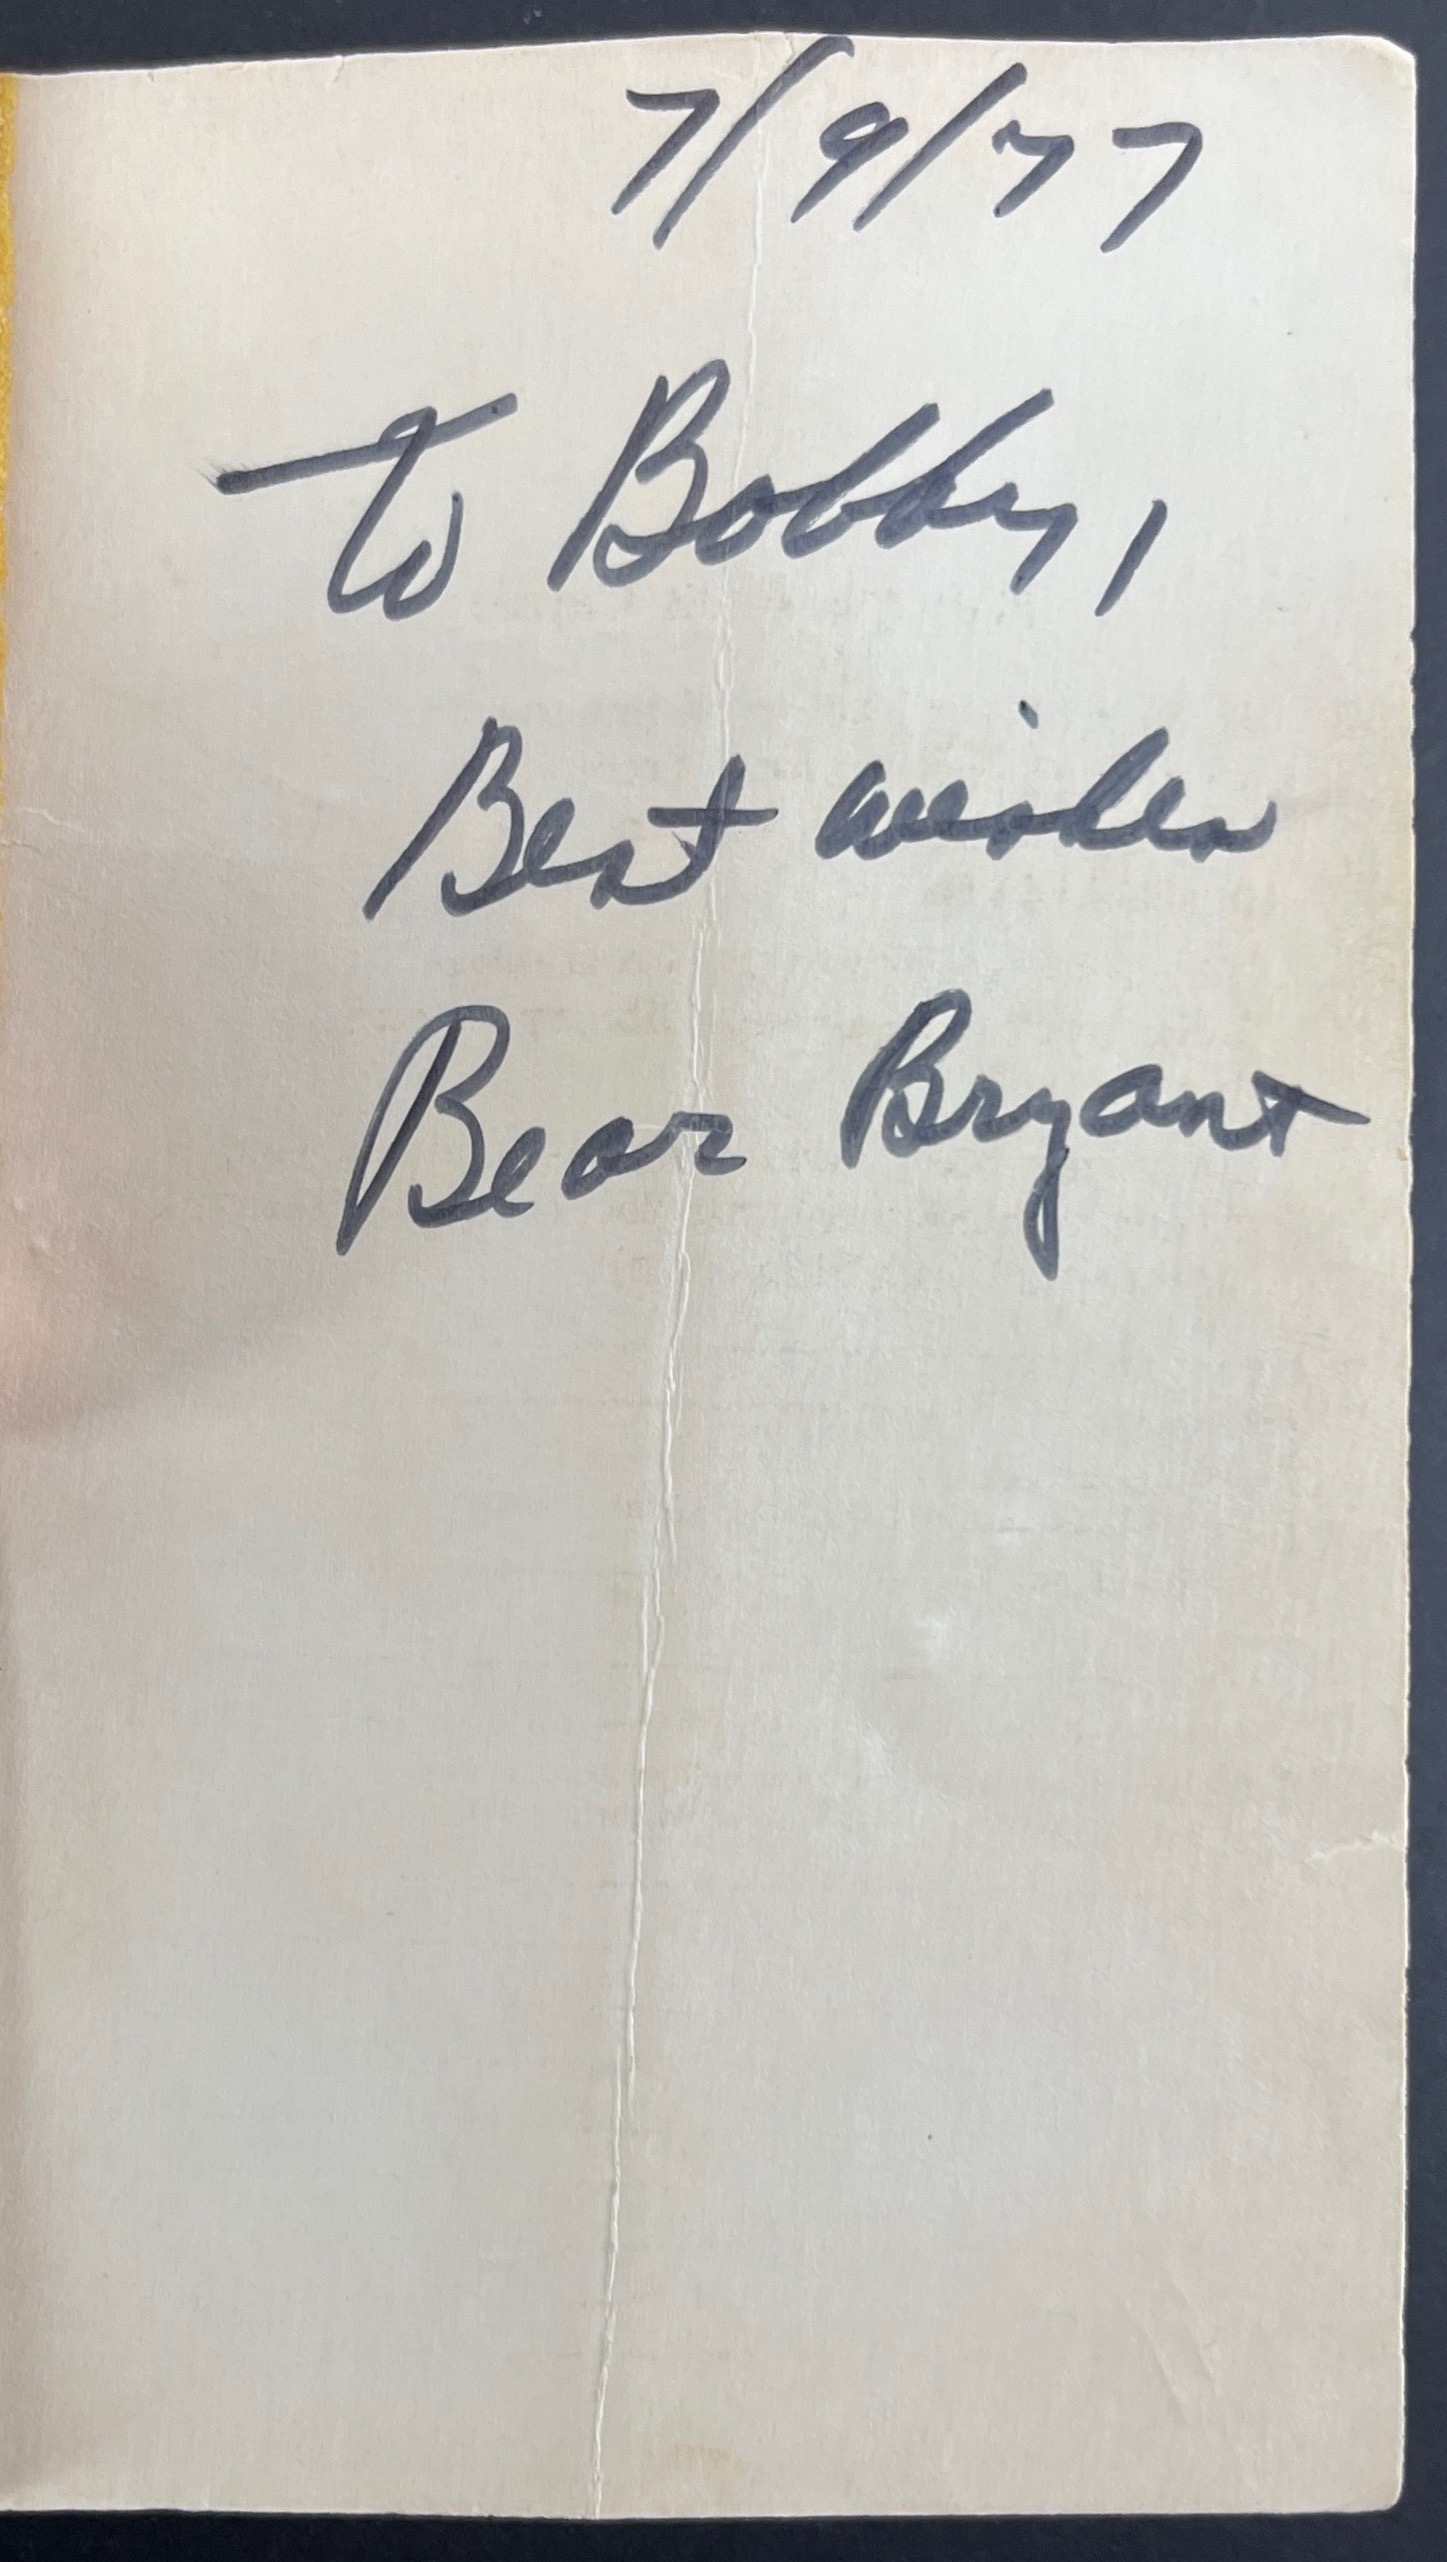 7/9/77
To Bobby,
Best wishes
Bear Bryant